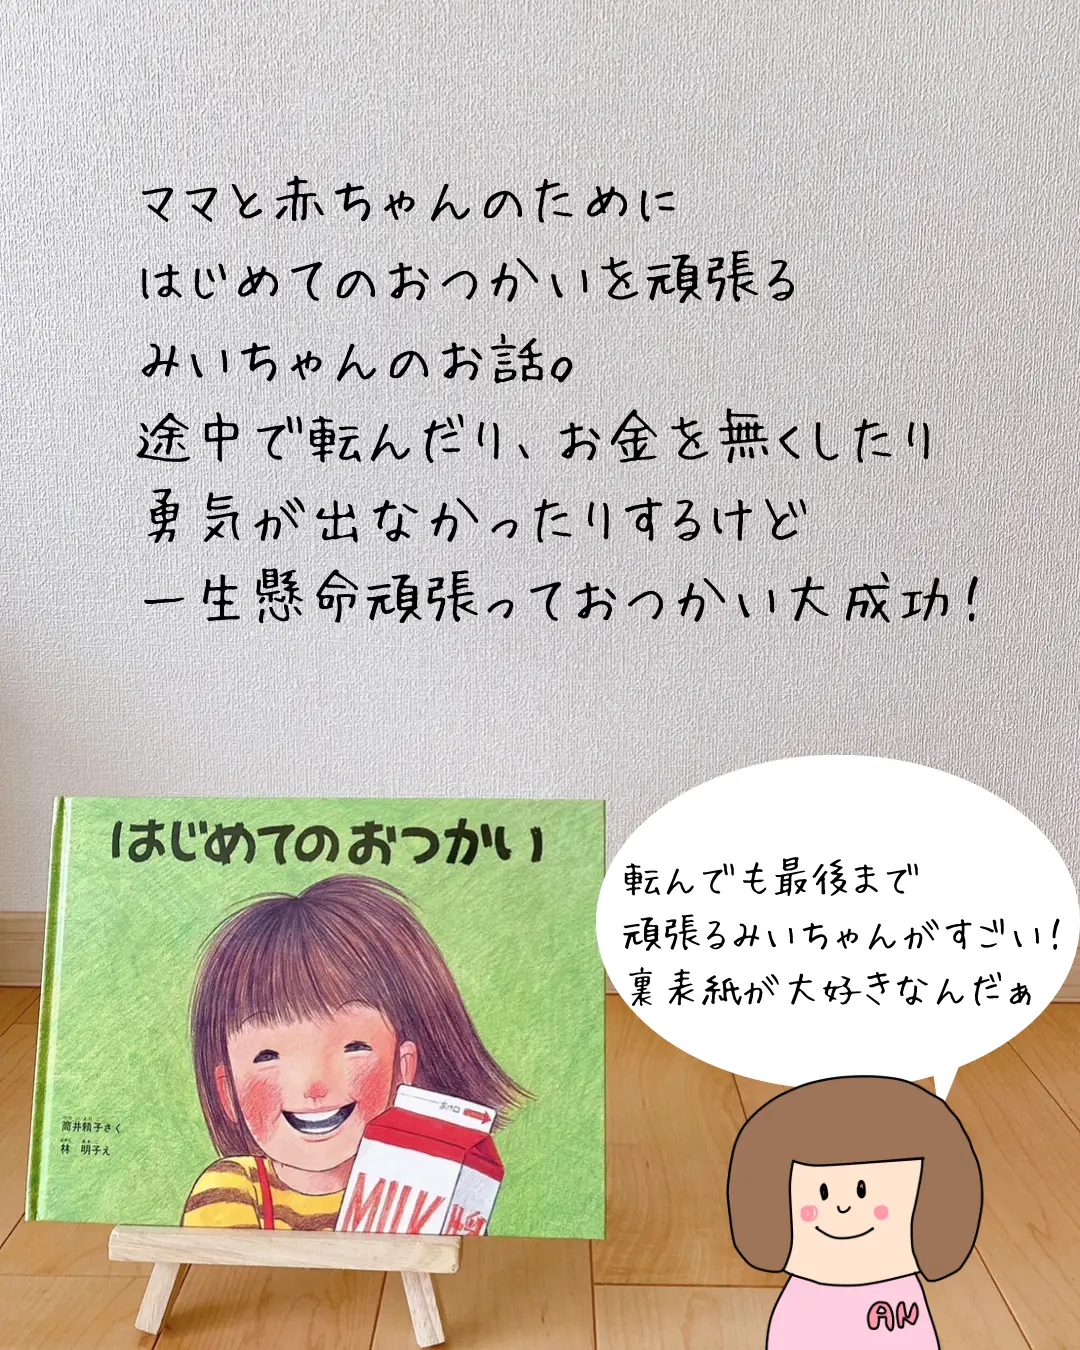 ママと赤ちゃんのために
はじめてのおつかいを頑張る
みいちゃんのお話。
途中で転んだり、お金を無くしたり
勇気が出なかったりするけど
一生懸命頑張っておつかい大成功!
はじめてのおつかい
筒井頼子さく
林 明子え
あけ口
MILK
転んでも最後まで
頑張るみいちゃんがすごい!
裏表紙が大好きなんだぁ
AN